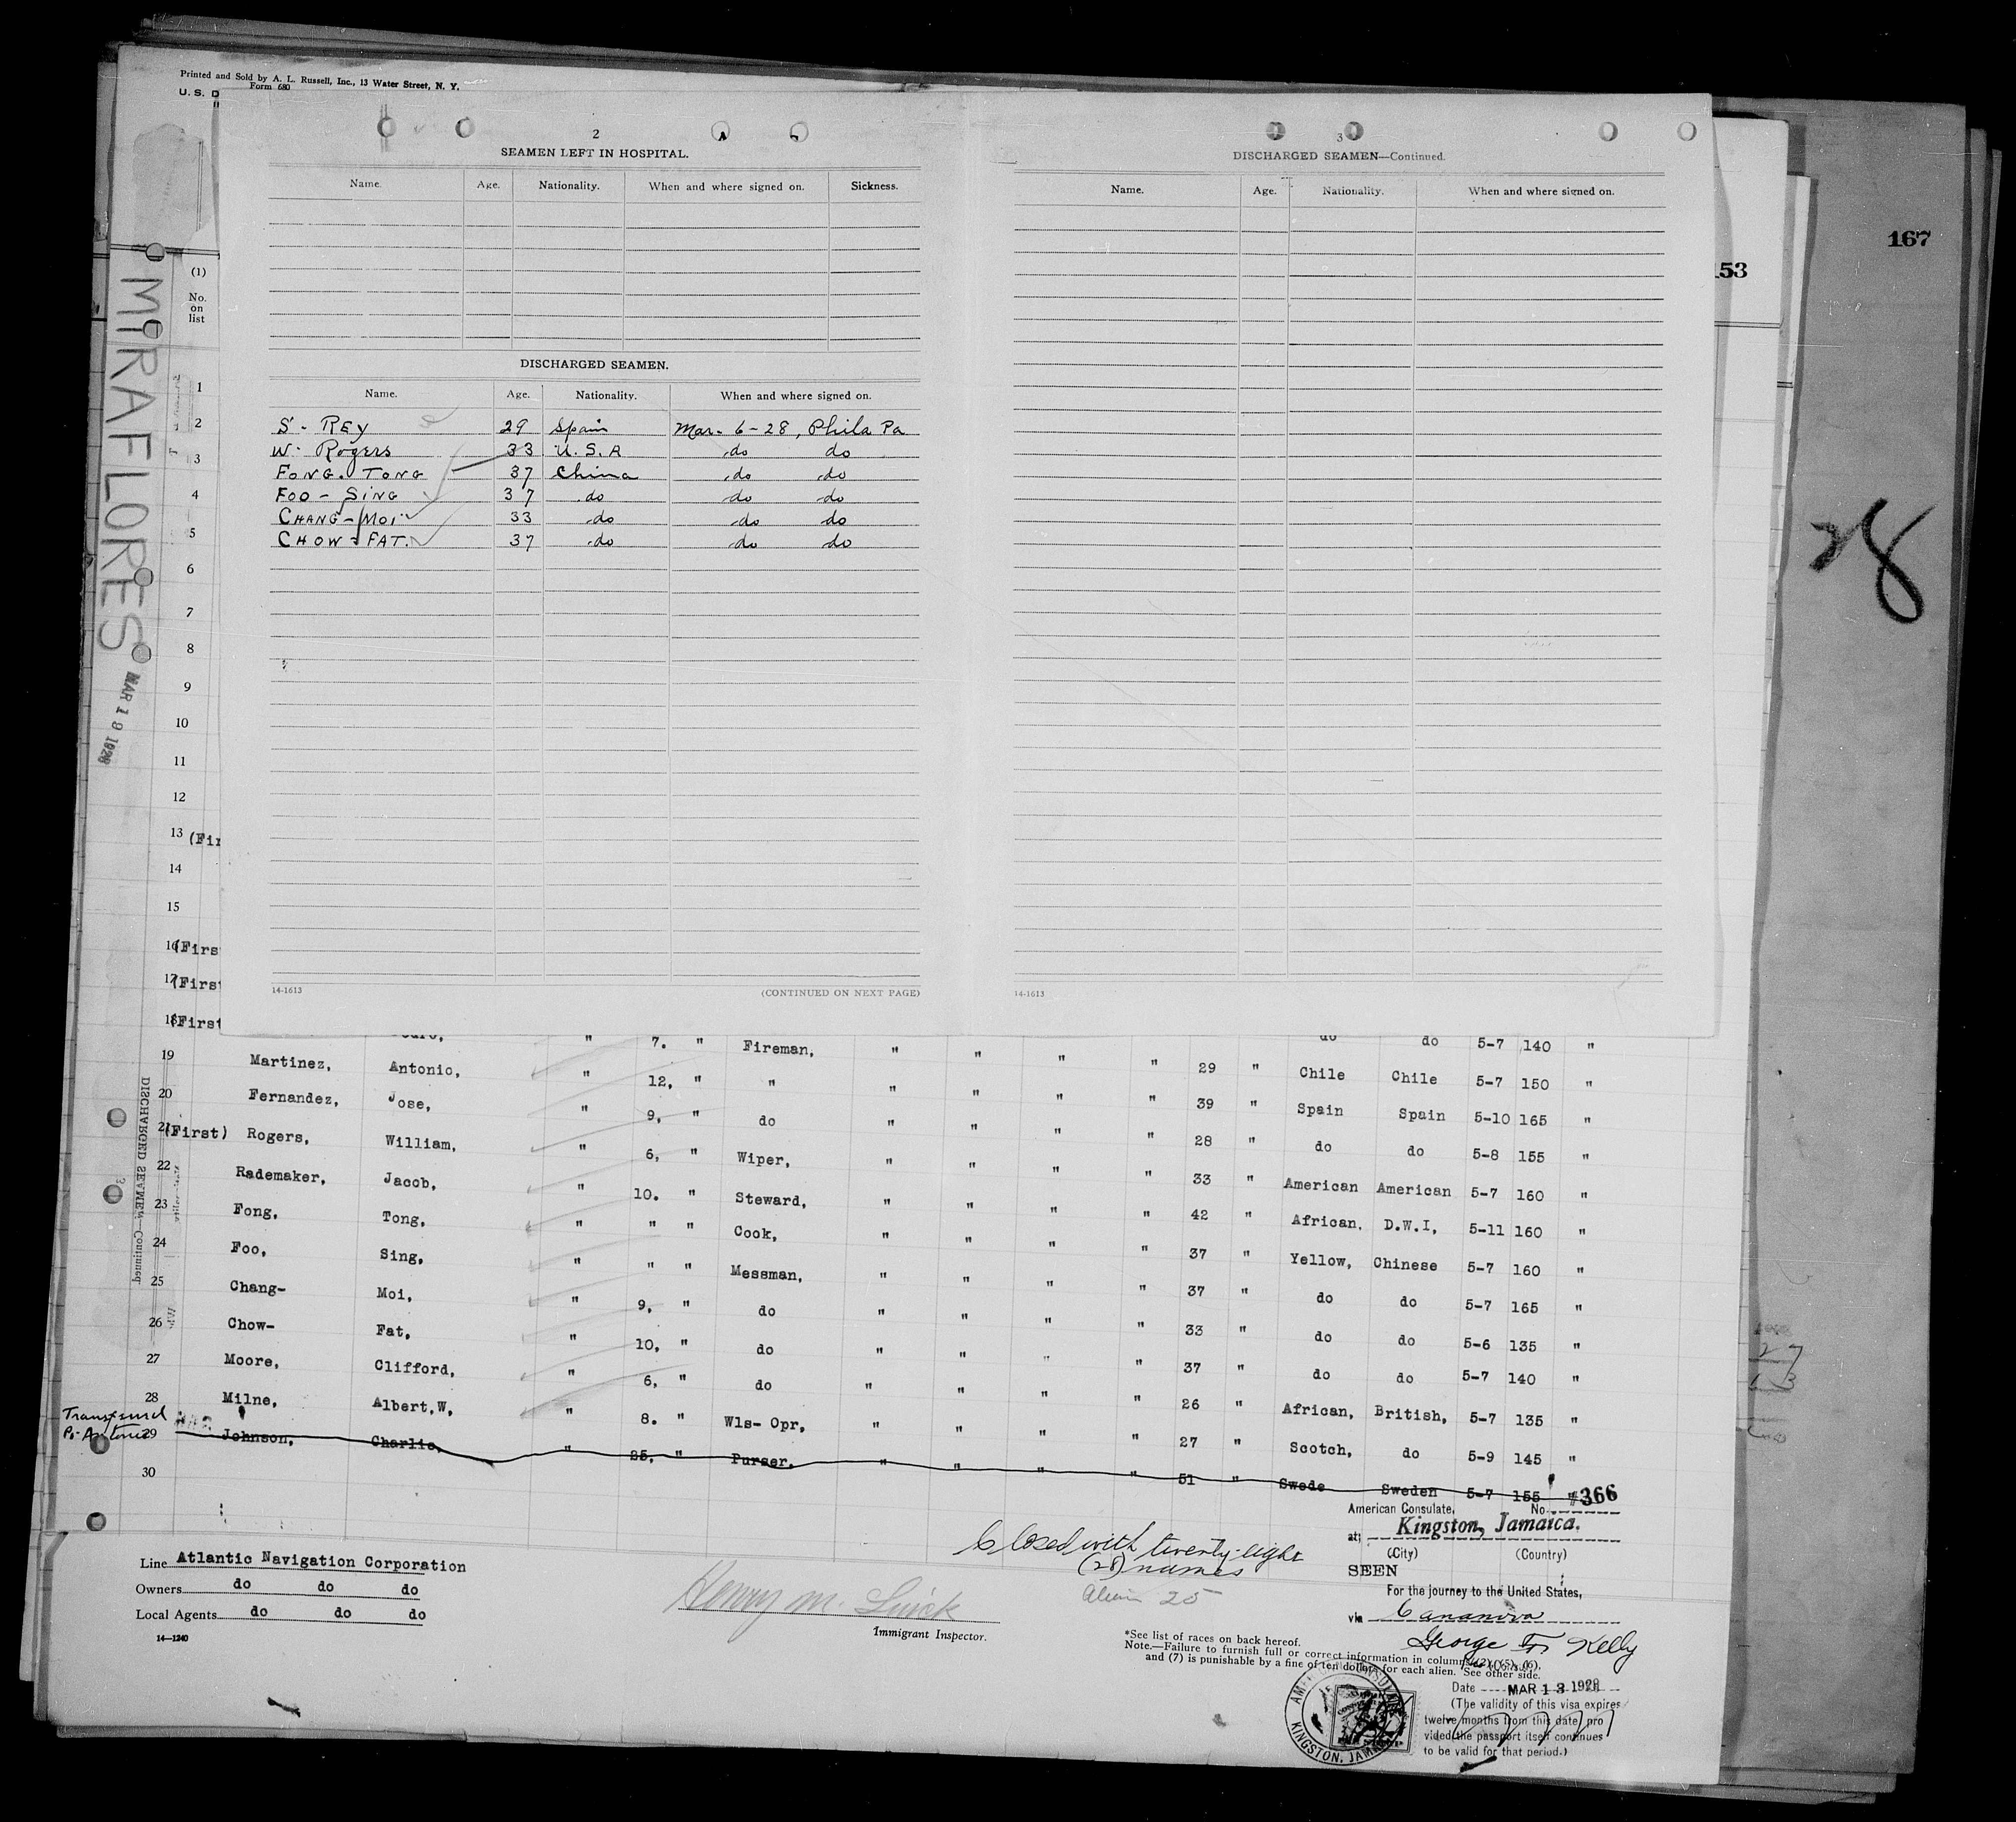 Printed and Sold by A. L. Russell, Inc., 13 Water Street, N. Y.
Form 680
U. S. D
167
153
28
MIRAFLORES
MAR 19 1928
2
SEAMEN LEFT IN HOSPITAL.
Name. Age. Nationality. When and where signed on. Sickness.
DISCHARGED SEAMEN.
Name. Age. Nationality. When and where signed on.
S. REY 29 Spain Mar. 6-28, Phila Pa
W. Rogers 33 U.S.A do do
FONG. TONG 37 China do do
FOO - SING 37 do do do
CHANG - MOI 33 do do do
CHOW - FAT. 37 do do do
14-1613 (CONTINUED ON NEXT PAGE)
3
DISCHARGED SEAMEN—Continued.
Name. Age. Nationality. When and where signed on.
14-1613
(1)
No.
on
list
1
2
3
4
5
6
7
8
9
10
11
12
13 (Fir
14
15
16 (Firs
17 (First
18 (First
7. " Fireman, " " " " do do 5-7 140 "
19 Martinez, Antonio, " 12, " " " " " " 29 " Chile Chile 5-7 150 "
20 Fernandez, Jose, " 9, " do " " " " 39 " Spain Spain 5-10 165 "
21 (First) Rogers, William, " 6, " Wiper, " " " " 28 " do do 5-8 155 "
22 Rademaker, Jacob, " 10. " Steward, " " " " 33 " American American 5-7 160 "
23 Fong, Tong, " " " Cook, " " " " 42 " African. D.W.I, 5-11 160 "
24 Foo, Sing, " " " Messman, " " " " 37 " Yellow, Chinese 5-7 160 "
25 Chang- Moi, " 9, " do " " " " 37 " do do 5-7 165 "
26 Chow- Fat, " 10, " do " " " " 33 " do do 5-6 135 "
27 Moore, Clifford, " 6, " do " " " " 37 " do do 5-7 140 "
28 Milne, Albert,W, " 8. " Wls- Opr, " " " " 26 " African, British, 5-7 135 "
29 Johnson, Charlie, " 25, " Purser. " " " " 27 " Scotch, do 5-9 145 "
51 " Swede Sweden 5-7 155 "
30
DISCHARGED SEAMEN—Continued.
3
Line Atlantic Navigation Corporation
Owners do do do
Local Agents do do do
14—1240
Closed with twenty-eight
(28) names
Alien 25
Immigrant Inspector.
*See list of races on back hereof.
Note.—Failure to furnish full or correct information in columns (2), (5), (6),
and (7) is punishable by a fine of ten dollars for each alien. See other side.
American Consulate, No. #366
at; Kingston, Jamaica.
(City) (Country)
SEEN
For the journey to the United States,
via
George F. Kelly
Date MAR 13 1928
(The validity of this visa expires
twelve months from this date, pro
vided the passport itself continues
to be valid for that period.)
KINGSTON, JAMAICA